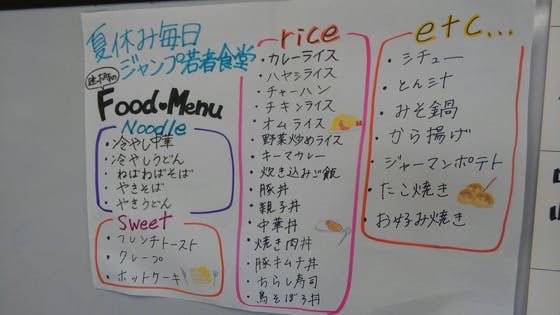 夏休み毎日
ジャンプ若者食堂
Food・Menu
Noodle
・冷やし中華
・冷やしうどん
・ねばねばそば
・やきそば
・やきうどん
Sweet
・フレンチトースト
・クレープ
・ホットケーキ
rice
・カレーライス
・ハヤシライス
・チャーハン
・チキンライス
・オムライス
・野菜炒めライス
・キーマカレー
・炊き込みご飯
・豚丼
・親子丼
・中華丼
・焼き肉丼
・豚キムチ丼
・ちらし寿司
・鳥そぼろ丼
etc...
・シチュー
・とん汁
・みそ鍋
・から揚げ
・ジャーマンポテト
・たこ焼き
・お好み焼き